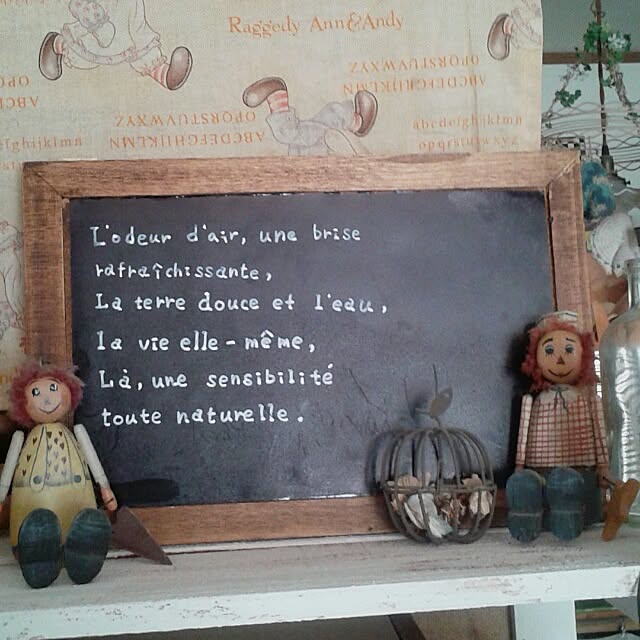 Raggedy Ann&And
ABCDEFGHIJKLMN
OPQRSTUVWXYZ
ABCDEFGHIJKLMN
OPQRSTUVWXYZ
abcdefghijklmn
opqrstuvwxyz
L'odeur d'air, une brise
rafraîchissante,
La terre douce et l'eau,
la vie elle-même,
Là, une sensibilité
toute naturelle.